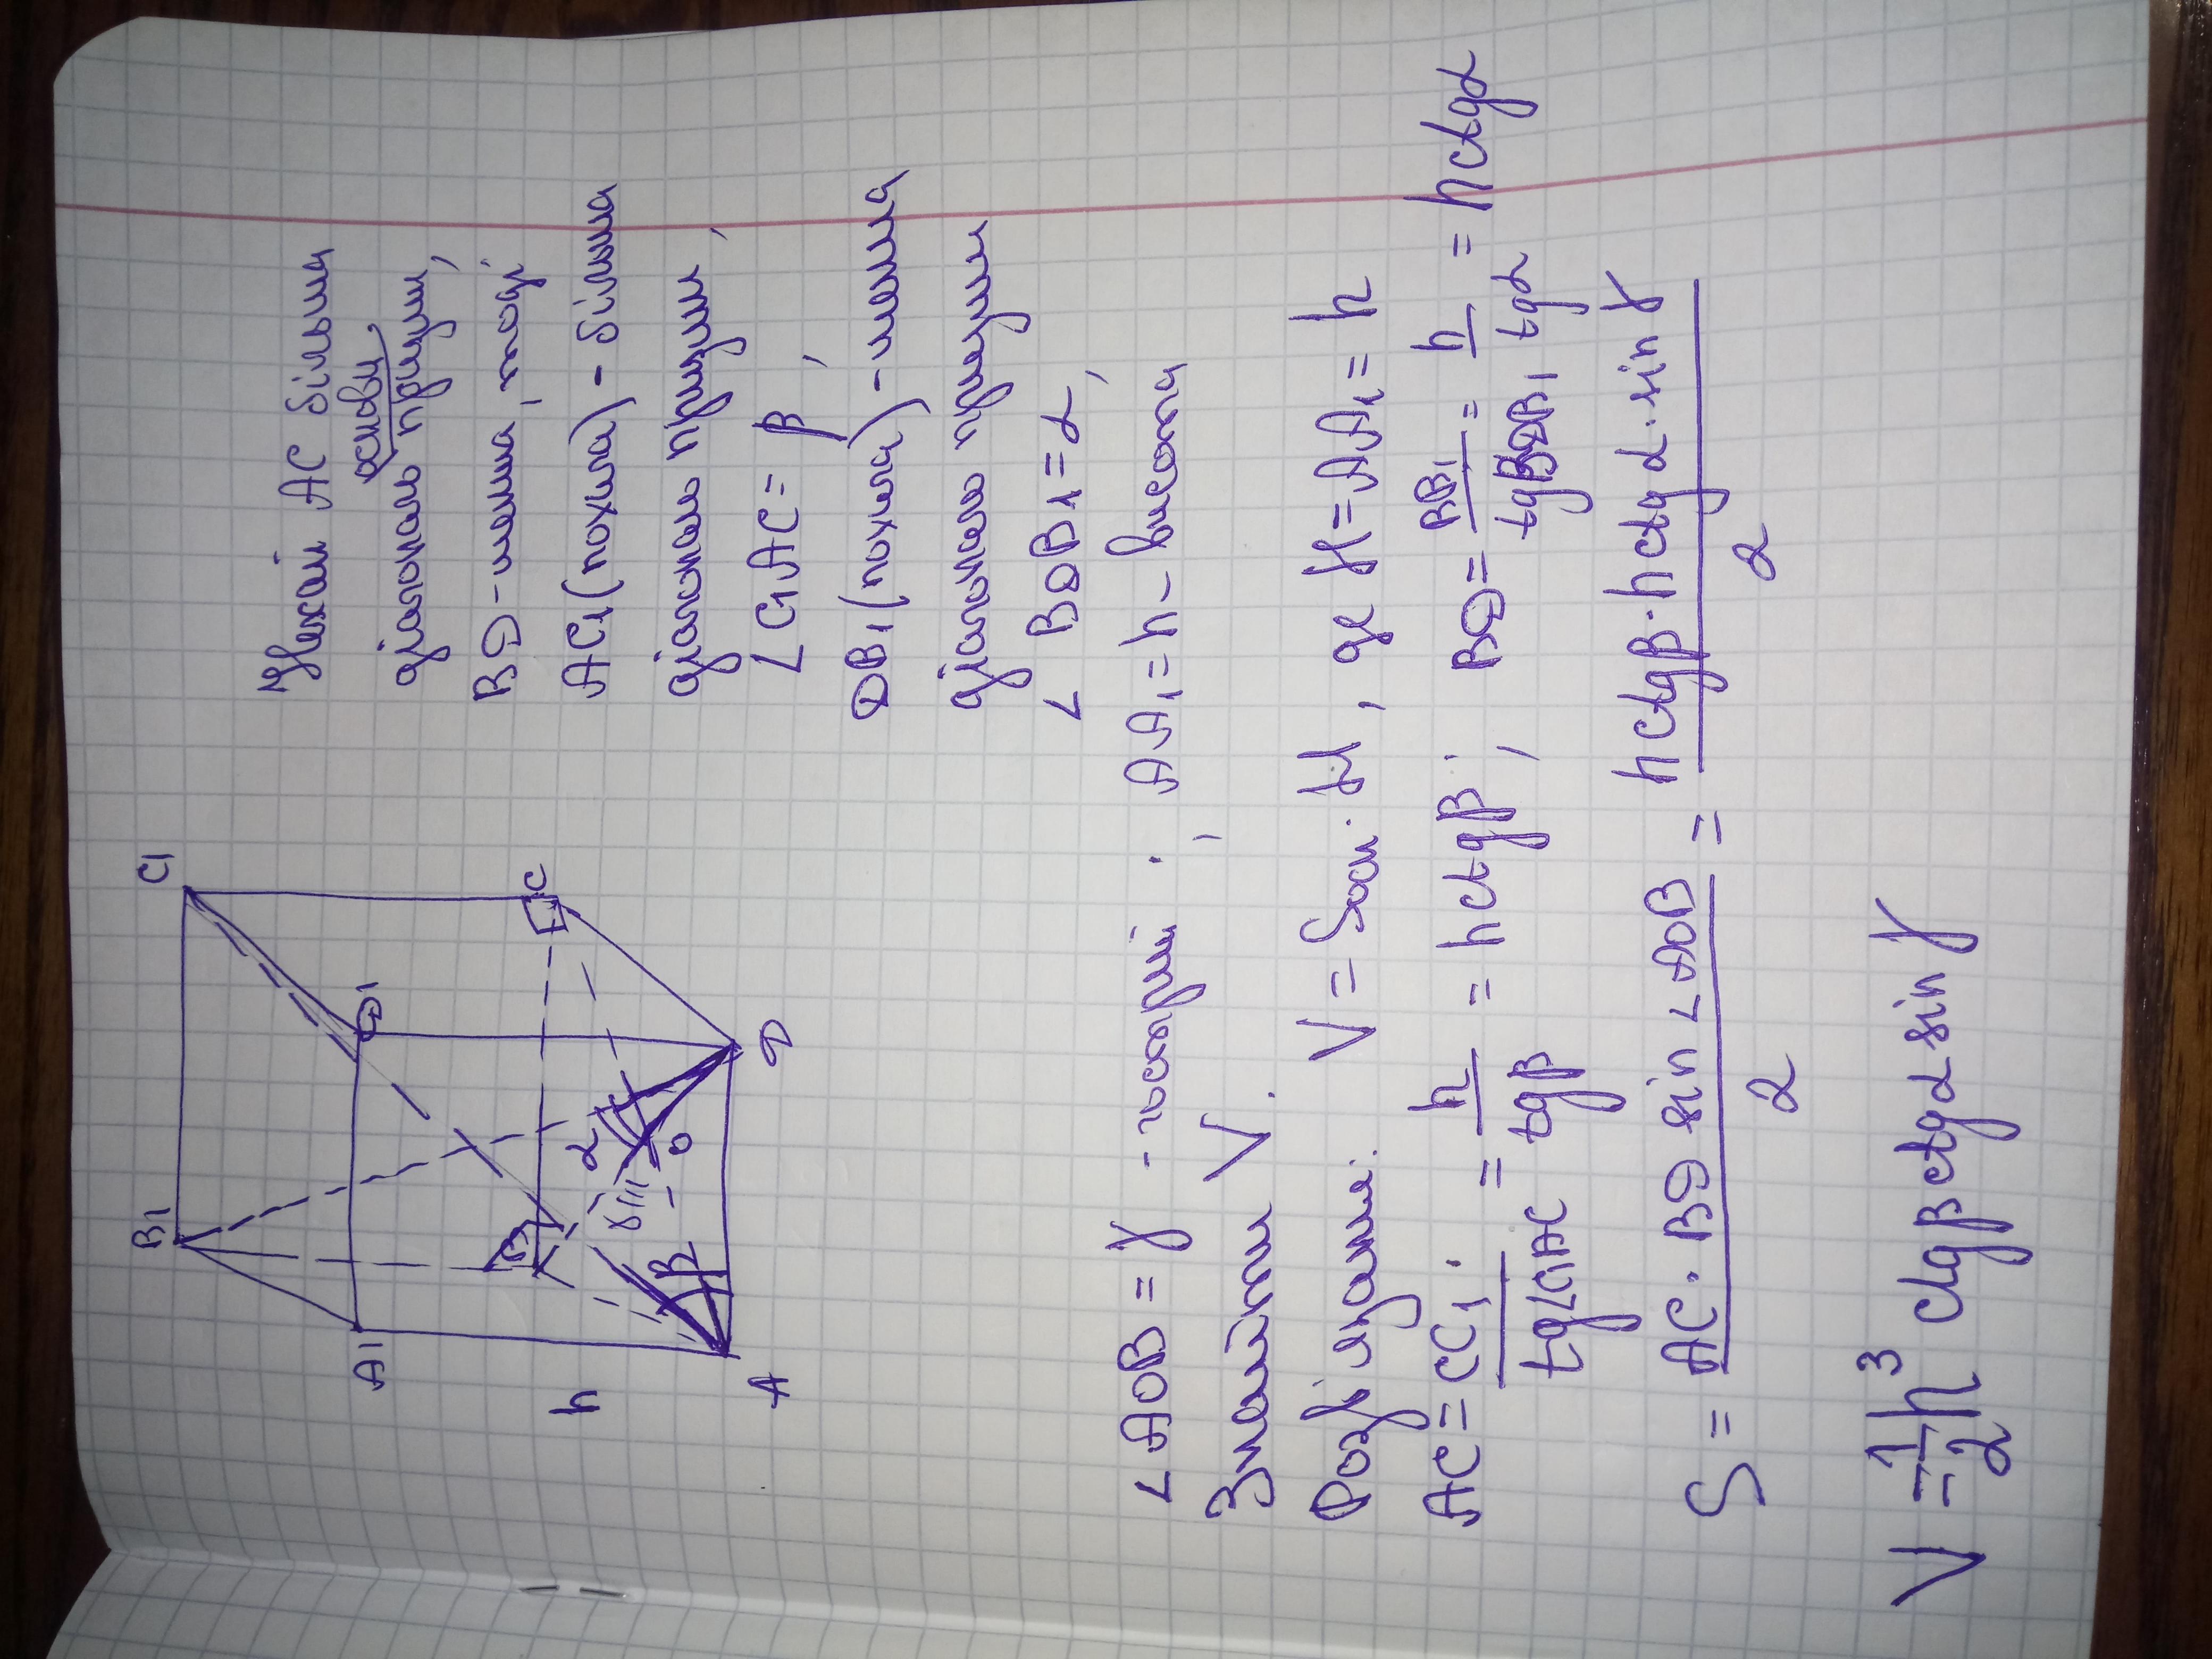 B1
C1
A1
D1
h
B
C
α
γ
β
O
A
D
Нехай AC більша
основи
діагональ призми,
BD - менша, тоді
AC1 (похила) - більша
діагональ призми,
∠C1AC = β,
DB1 (похила) - менша
діагональ призми
∠ BDB1 = α,
∠AOB = γ - гострий ; AA1 = h - висота
Знайти V.
Розв'язання: V = Sосн. H, де H = AA1 = h
AC = CC1 / tg∠C1AC = h / tgβ = hctgβ; BD = BB1 / tgBDB1 = h / tgα = hctgα
S = AC · BD sin ∠AOB / 2 = hctgβ · hctgα · sin γ / 2
V = 1/2 h³ ctgβctgα sin γ